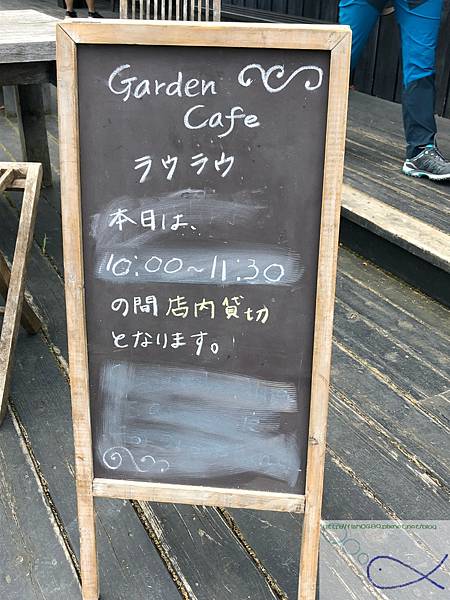 Garden
Cafe
ラウラウ
本日は、
10:00~11:30
の間店内貸切
となります。